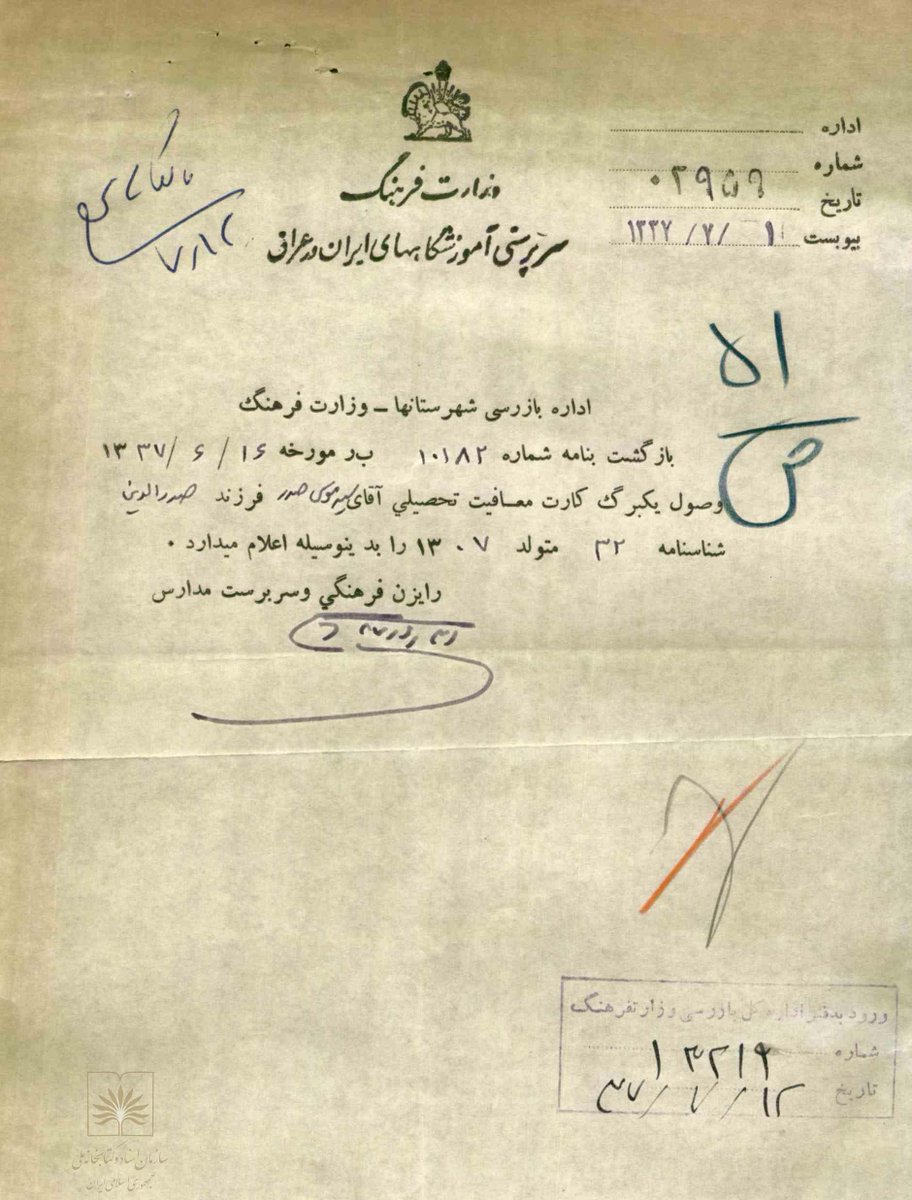 وزارت فرهنگ
سرپرستی آموزشگاههای ایران در عراق
اداره
شماره ۰۲۹۵۹
تاریخ
پیوست ۱ /۷/ ۱۳۳۷
۷/۱۲
اداره بازرسی شهرستانها ـ وزارت فرهنگ
بازگشت بنامه شماره ۱۰۱۸۲ ب ر مورخه ۱۶ / ۶ / ۳۷ ۱۳
وصول یکبرگ کارت معافیت تحصیلی آقای سید موسی صدر فرزند صدرالدین
شناسنامه ۳۲ متولد ۰۷ ۱۳ را بدینوسیله اعلام میدارد .
رایزن فرهنگی و سرپرست مدارس
ورود بدفتر اداره کل بازرسی وزارت فرهنگ
شماره ۱۳۲۱۹
تاریخ ۱۲ / ۷ / ۳۷
سازمان اسناد و کتابخانه ملی
جمهوری اسلامی ایران